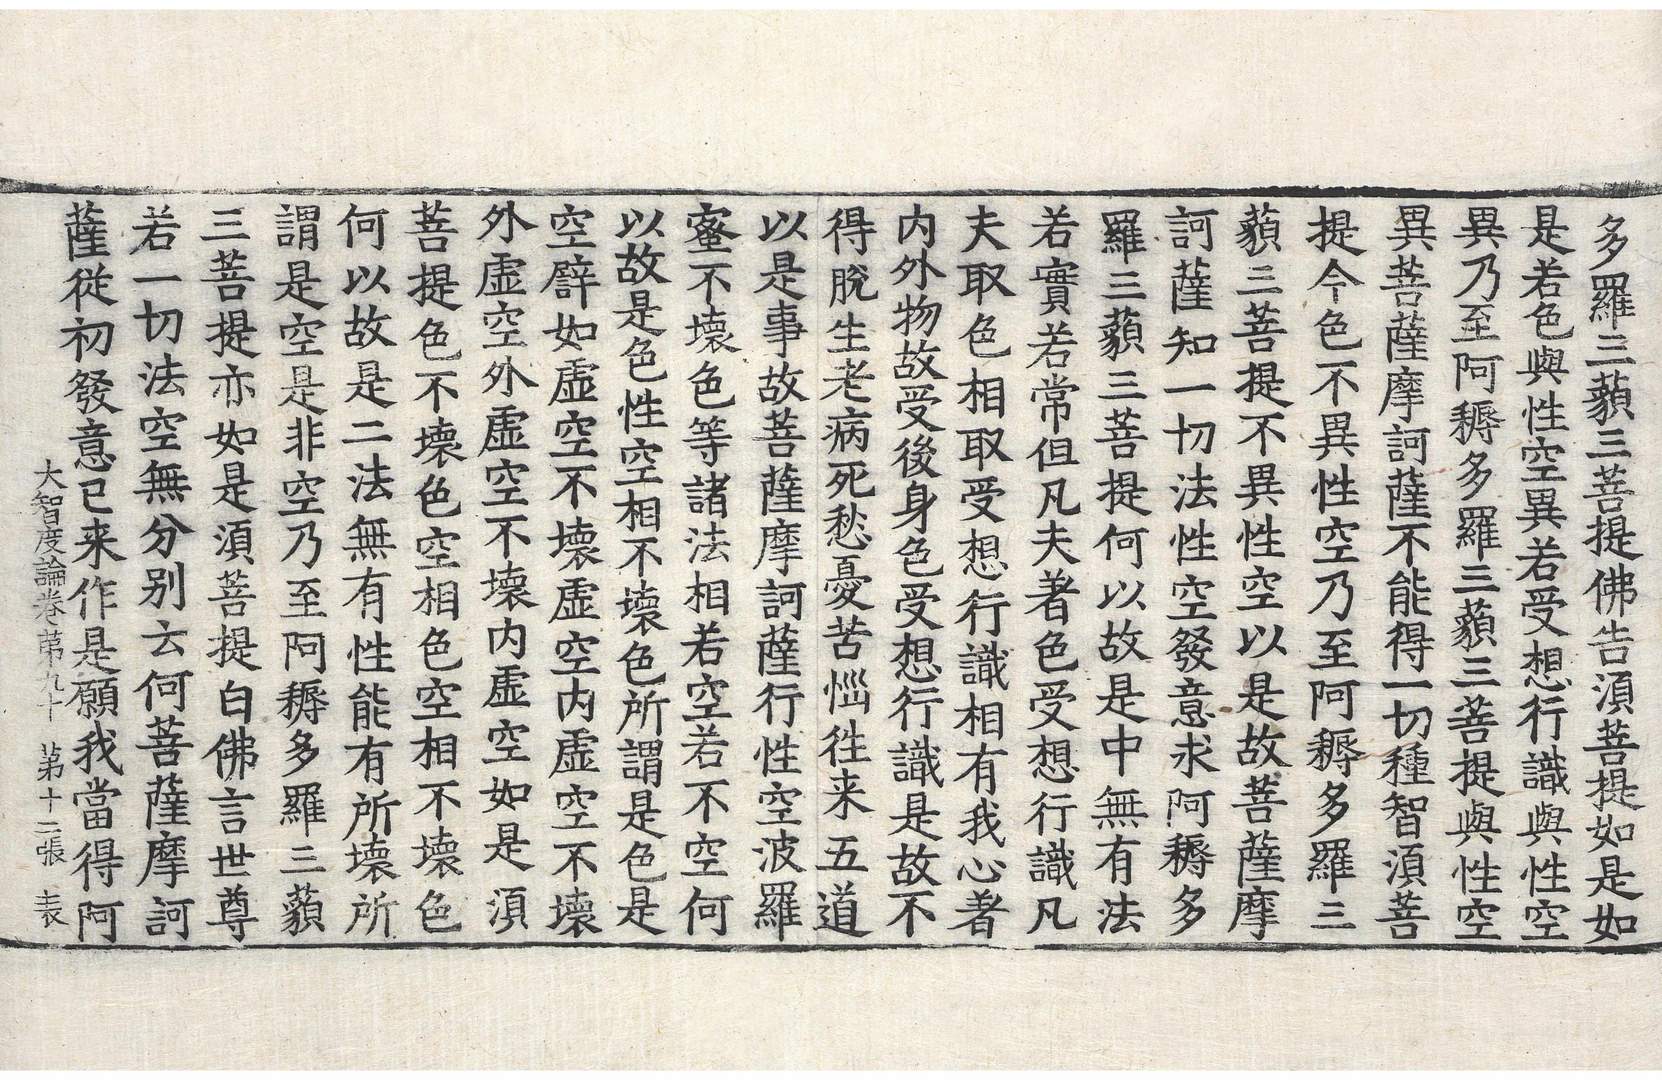 多羅三藐三菩提佛告湏菩提如是如
是若色與性空異若受想行識與性空
異乃至阿耨多羅三藐三菩提與性空
異菩薩摩訶薩不能得一切種智湏菩
提今色不異性空乃至阿耨多羅三
藐三菩提不異性空以是故菩薩摩
訶薩知一切法性空發意求阿耨多
羅三藐三菩提何以故是中無有法
若實若常但凡夫著色受想行識凡
夫取色相取受想行識相有我心著
内外物故受後身色受想行識是故不
得脫生老病死愁憂苦惱徃来五道
以是事故菩薩摩訶薩行性空波羅
蜜不壞色等諸法相若空若不空何
以故是色性空相不壞色所謂是色是
空譬如虛空不壞虛空内虛空不壞
外虛空外虛空不壞内虛空如是湏
菩提色不壞色空相色空相不壞色
何以故是二法無有性能有所壞所
謂是空是非空乃至阿耨多羅三藐
三菩提亦如是湏菩提白佛言世尊
若一切法空無分別云何菩薩摩訶
薩從初發意已来作是願我當得阿
大智度論卷苐九十 苐十二張 表